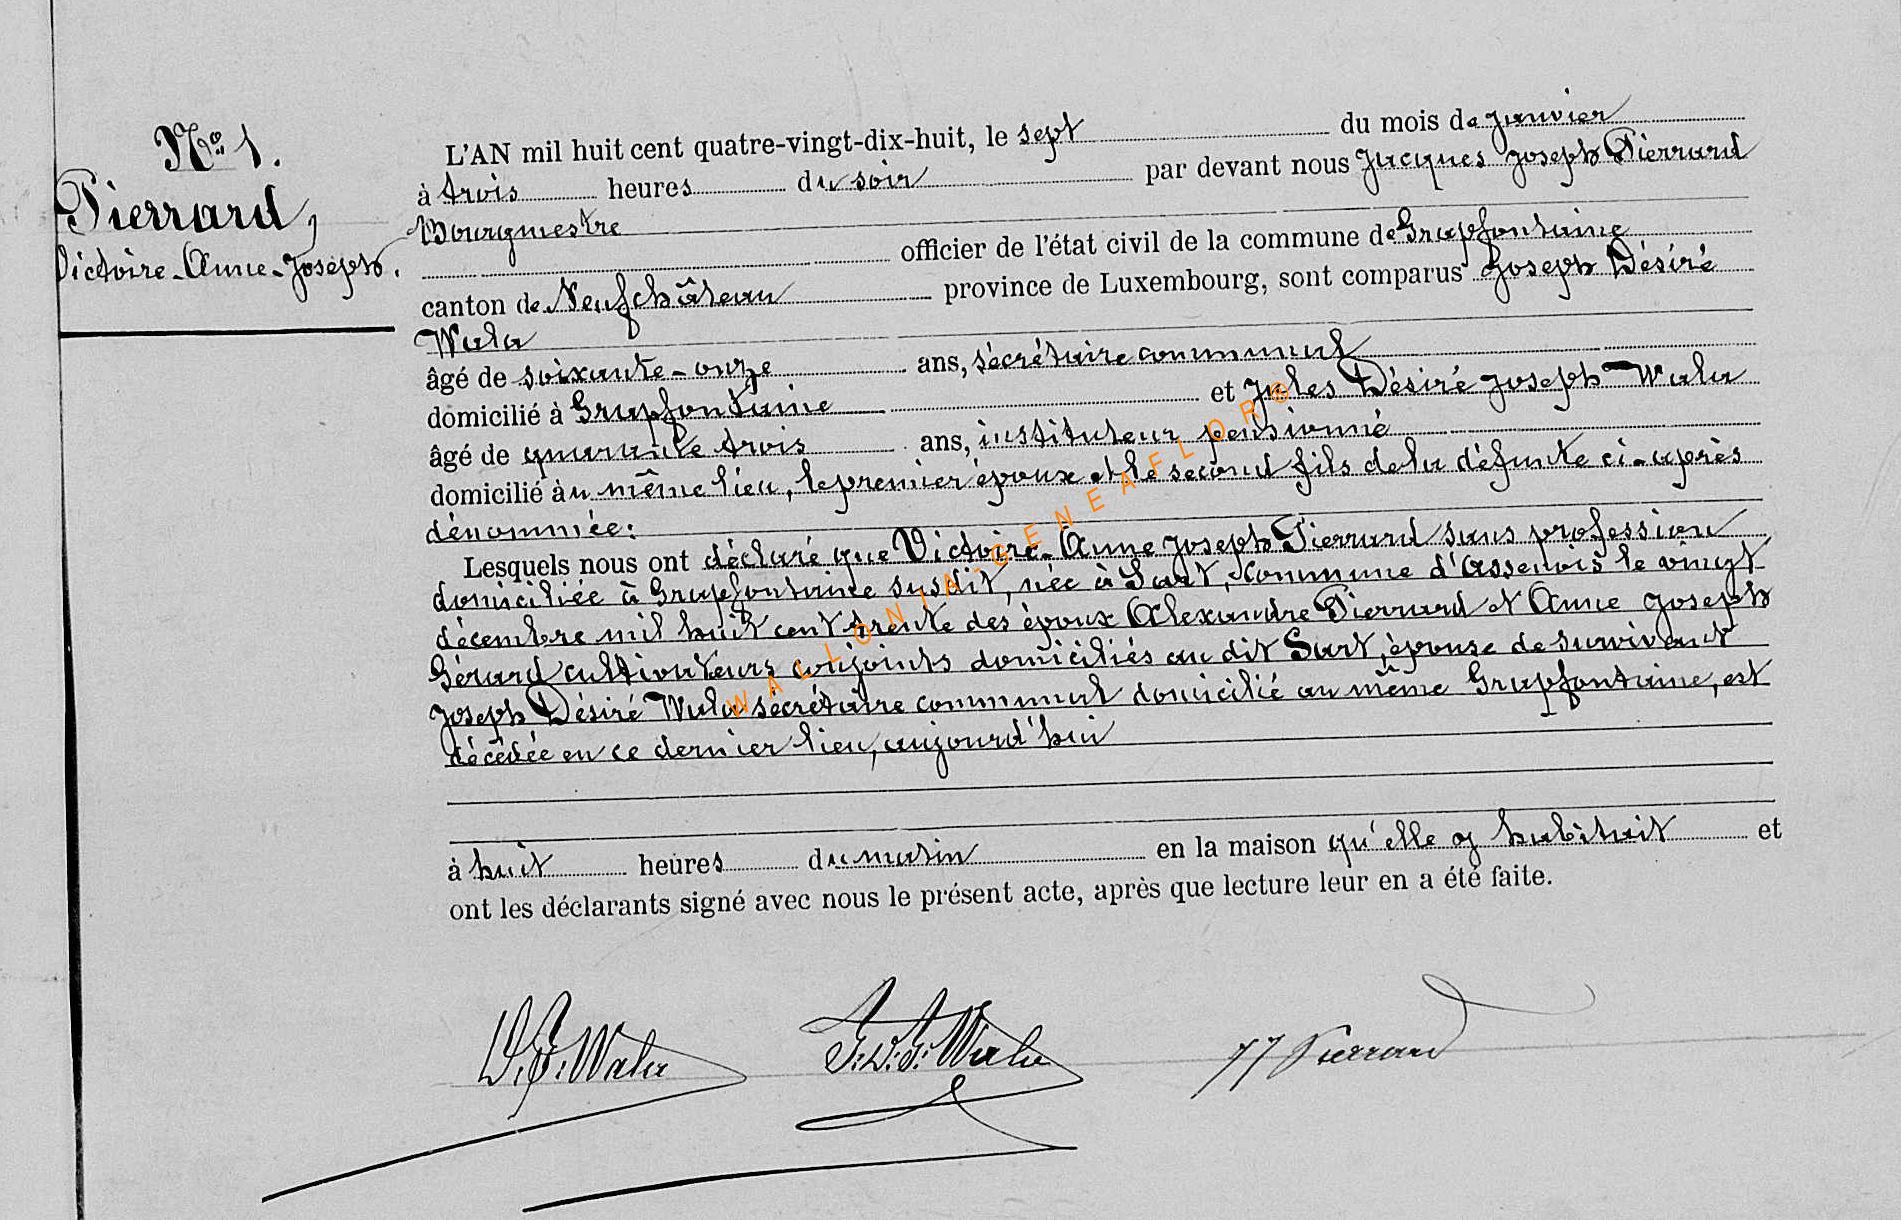 No 1.
Pierrard,
Victoire-Anne-Joseph.
L'AN mil huit cent quatre-vingt-dix-huit, le sept du mois de janvier
à trois heures du soir par devant nous Jacques Joseph Pierrard
Bourgmestre
officier de l'état civil de la commune de Grapfontaine
canton de Neufchâteau province de Luxembourg, sont comparus Joseph Désiré
Wala
âgé de soixante-onze ans, sécrétaire communal
domicilié à Grapfontaine et Jules Désiré Joseph Wala
âgé de quarante trois ans, instituteur pensionné
domicilié au même lieu, le premier époux et le second fils de la défunte ci-après
dénommée:
Lesquels nous ont déclaré que Victoire-Anne Joseph Pierrard sans profession
domiciliée à Grapfontaine susdit, née à Sart, commune d'Assenois le vingt
décembre mil huit cent trente des époux Alexandre Pierrard et Anne Joseph
Gérard cultivateurs conjoints domiciliés au dit Sart, épouse de survivant
Joseph Désiré Wala sécrétaire communal domicilié au même Grapfontaine, est
décédée en ce dernier lieu, aujourd'hui
à huit heures du matin en la maison qu'elle y habitait et
ont les déclarants signé avec nous le présent acte, après que lecture leur en a été faite.
D.J. Wala J.D.J. Wala JJ Pierrard
WALLONIA GENEAFLOR©